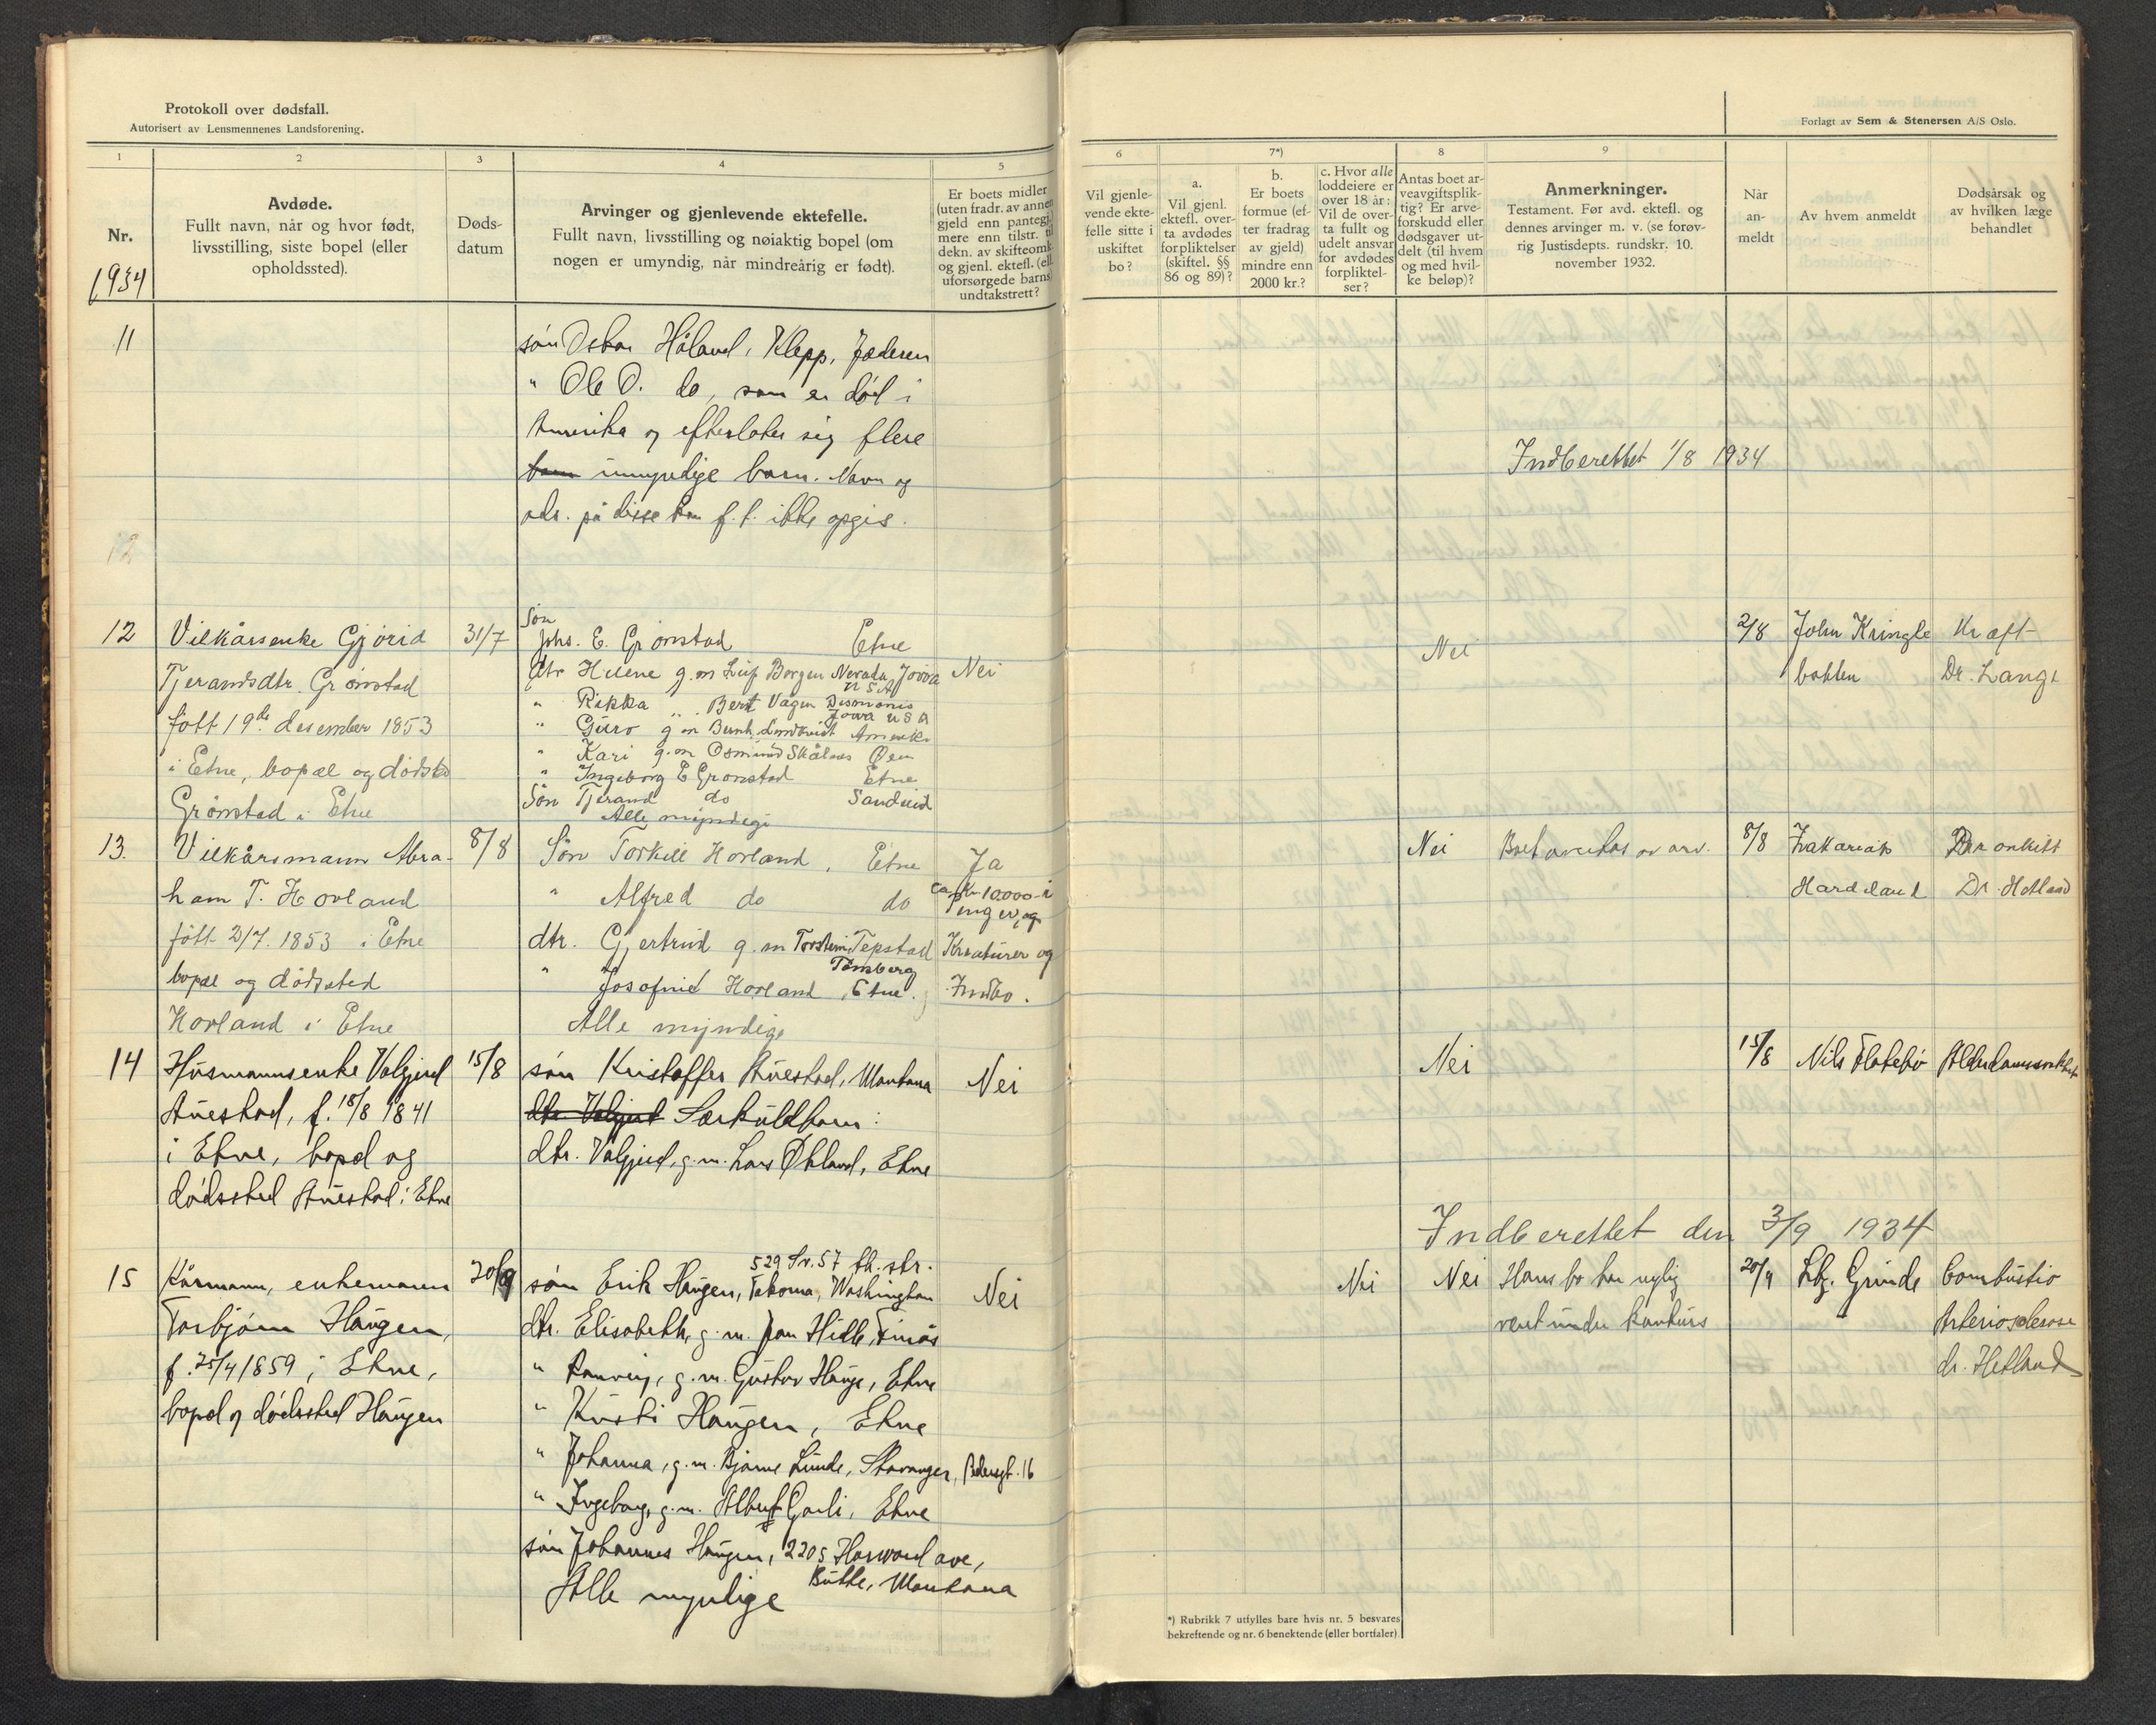 Protokoll over dødsfall.
Autorisert av Lensmennenes Landsforening.
1
2
3
4
5
Nr.
1934
Avdøde.
Fullt navn, når og hvor født,
livsstilling, siste bopel (eller
opholdssted).
Døds-
datum
Arvinger og gjenlevende ektefelle.
Fullt navn, livsstilling og nøiaktig bopel (om
nogen er umyndig, når mindreårig er født).
Er boets midler
(uten fradr. av annen
gjeld enn pantegj.)
mere enn tilstr. til
dekn. av skifteomk.
og gjenl. ektefl. (ell.
uforsørgede barns)
undtakstrett?
11
søn Oskar Håland, Klepp, Jæderen
" Ole O. do, som er død i
Amerika og efterlater sig flere
barn umyndige barn. Navn og
adr. på disse kan f.t. ikke opgis.
12
12
Vilkårsenke Gjørid
Tjerandsdtr. Grønstad
født 19de desember 1853
i Etne, bopæl og dødsted
Grønstad i Etne
31/7
Søn
Johs. E. Grønstad Etne
dtr Helene g.m Leif Borgen Nevada, Jowa
U S A
" Rikka " Bert Vagen Desmonis
Jowa U S A
" Guro g m Bernh. Lundkvist Amerika
" Kari g.m Osmund Skålnes Ølen
" Ingeborg E Grønstad Etne
Søn Tjerand do Sandeid
Alle myndige
Nei
13.
Vilkårsmann Abra-
ham T. Hovland
født 2/7. 1853 i Etne
bopæl og dødssted
Hovland i Etne
8/8
Søn Torkell Hovland, Etne
" Alfred do do
dtr. Gjertrud g. m Torstein Tepstad
Tønsberg
" Josofine Hovland, Etne.
Alle myndige
Ja
ca. Kr 10.000 i
penger, og
Kreaturer og
Indbo.
14
Husmannsenke Valgjerd
Auestad, f. 18/8 1841
i Etne, bopel og
dødssted Auestad i Etne
15/8
søn Kristoffer Auestad, Montana
dtr. Valgjerd Særkuldbarn:
dtr. Valgjerd, g.m. Lars Økland, Etne
Nei
15
Kårmann, enkemann
Torbjørn Haugen,
f. 25/4 1859 i Etne,
bopel og dødssted Haugen
20/9
529 Sv. 57 th. str.
søn Erik Haugen, Takoma, Washington
dtr. Elisabeth, g. m. Jan Hille, Finås
" Ranveig, g. m. Gustav Hauge, Etne
" Kirsti Haugen, Etne
" Johanna, g. m. Bjarne Lunde, Stavanger, Pedersgt. 16
" Ingeborg, g. m. Albert Garli, Etne
søn Johannes Haugen, 2205 Harward ave,
Butte, Montana
Alle myndige
Nei
Forlagt av Sem & Stenersen A/S Oslo.
6
7*)
8
9
Vil gjenle-
vende ekte-
felle sitte i
uskiftet
bo?
a.
Vil gjenl.
ektefl. over-
ta avdødes
forpliktelser
(skiftel. §§
86 og 89)?
b.
Er boets
formue (ef-
ter fradrag
av gjeld)
mindre enn
2000 kr.?
c. Hvor alle
loddeiere er
over 18 år:
Vil de over-
ta fullt og
udelt ansvar
for avdødes
forpliktel-
ser?
Antas boet ar-
veavgiftsplik-
tig? Er arve-
forskudd eller
dødsgaver ut-
delt (til hvem
og med hvil-
ke beløp)?
Anmerkninger.
Testament. Før avd. ektefl. og
dennes arvinger m. v. (se forøv-
rig Justisdepts. rundskr. 10.
november 1932.
Når
an-
meldt
Av hvem anmeldt
Dødsårsak og
av hvilken læge
behandlet
Indberettet 1/8 1934
Nei
2/8
John Kringle
botten
Kræft
Dr. Lange
Nei
8/8
Zakarias
Hardeland
Bronkitt
Dr. Hetland
Nei
15/8
Nils Flatebø
Alderdomssvakhet
Indberettet den 3/9 1934
Nei
Nei
Hans bo har nylig
vert under konkurs
20/9
Lbg. Grinde
Combustio
Arteriosclerose
dr. Hetland
*) Rubrikk 7 utfylles bare hvis nr. 5 besvares
bekreftende og nr. 6 benektende (eller bortfaler).